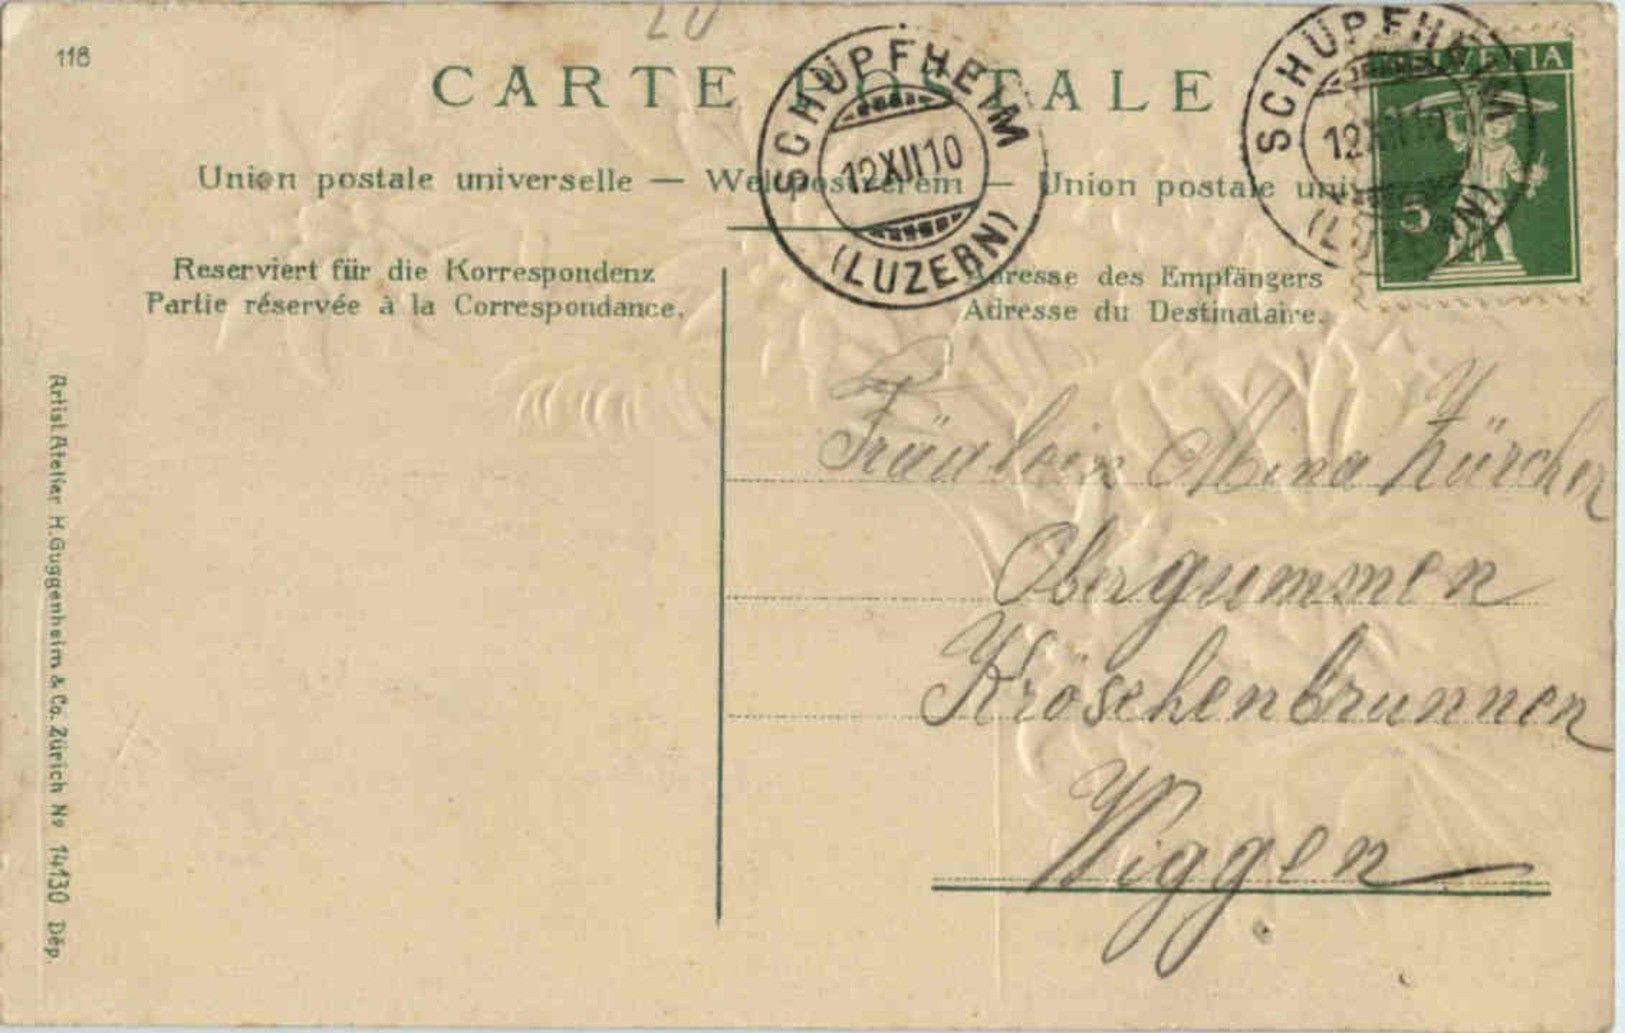 LU
118
CARTE POSTALE
SCHÜPFHEIM
12XII10
(LUZERN)
SCHÜPFHEIM
12XII10
(LUZERN)
HELVETIA
5
Union postale universelle — Weltpostverein — Union postale universelle
Reserviert für die Korrespondenz
Partie réservée à la Correspondance.
Adresse des Empfängers
Adresse du Destinataire.
Fräulein Mina Zürcher
Obergummen
Kröschenbrunnen
Wiggen
Artist. Atelier H. Guggenheim & Co. Zürich No 14130 Dép.